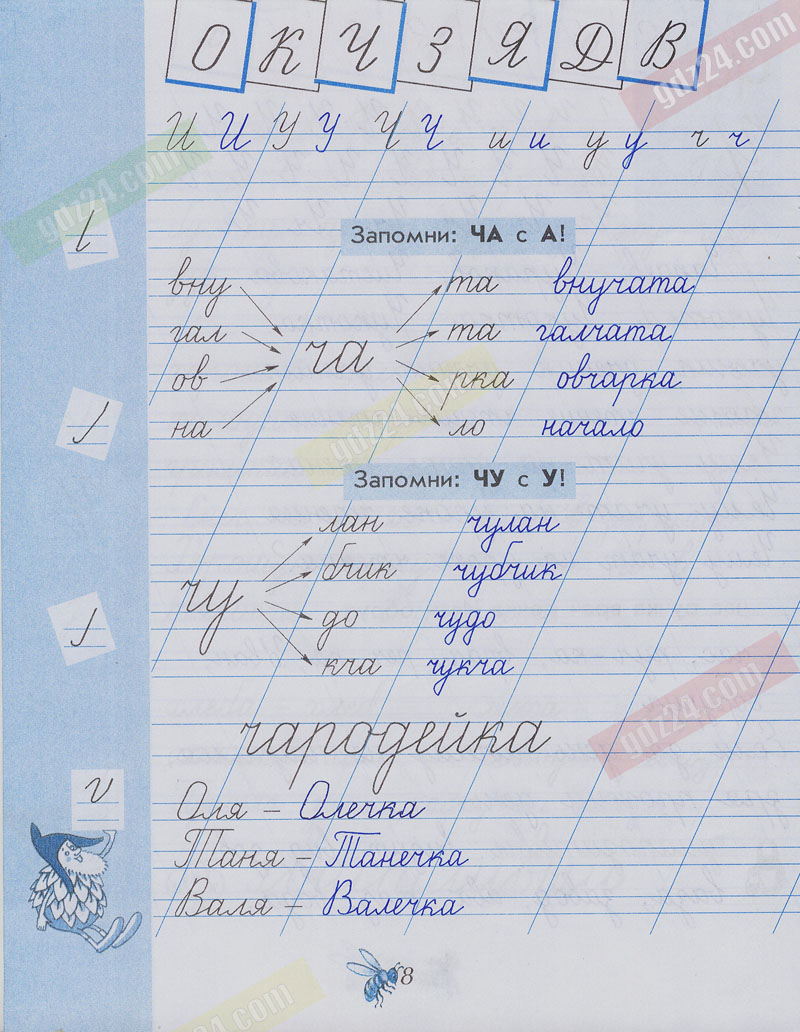 О К Ч З Я Д В
gdz24.com
И И У У Ч Ч и и у у ч ч
gdz24.com
Запомни: ЧА с А!
вну та внучата
гал та галчата
ча
ов рка овчарка
gdz24.com
на ло начало
Запомни: ЧУ с У!
лан чулан
бчик чубчик
чу
до чудо
кча чукча
gdz24.com
чародейка
Оля – Олечка
Таня – Танечка
Валя – Валечка
8
gdz24.com